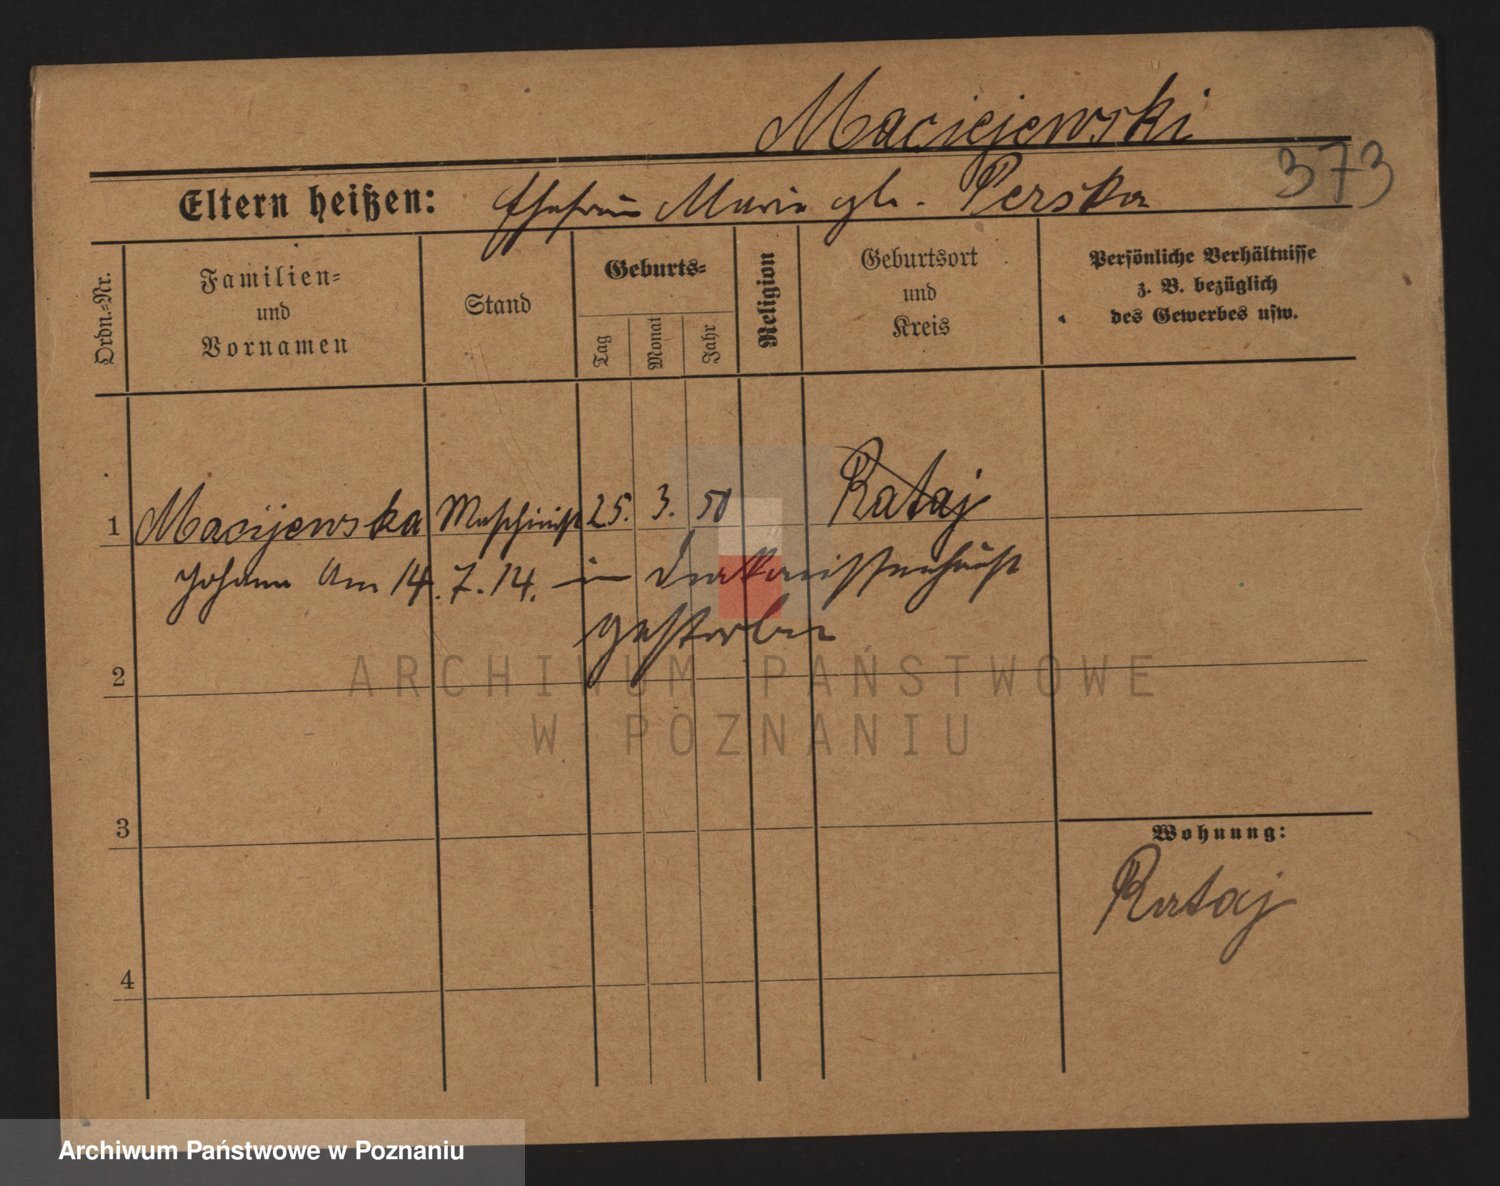 Maciejewski
373
Eltern heißen: Ehefrau Marie gb. Perska
Ordn.=Nr.
Familien=
und
Vornamen
Stand
Geburts=
Tag
Monat
Jahr
Religion
Geburtsort
und
Kreis
Persönliche Verhältnisse
z. B. bezüglich
des Gewerbes usw.
1 Macijewska Maschinist 25. 3. 50 Rataj
Johann Am 14. 7. 14. in Diakonissenhause
gestorben
2
ARCHIWUM PAŃSTWOWE
W POZNANIU
3
Wohnung:
Rataj
4
Archiwum Państwowe w Poznaniu